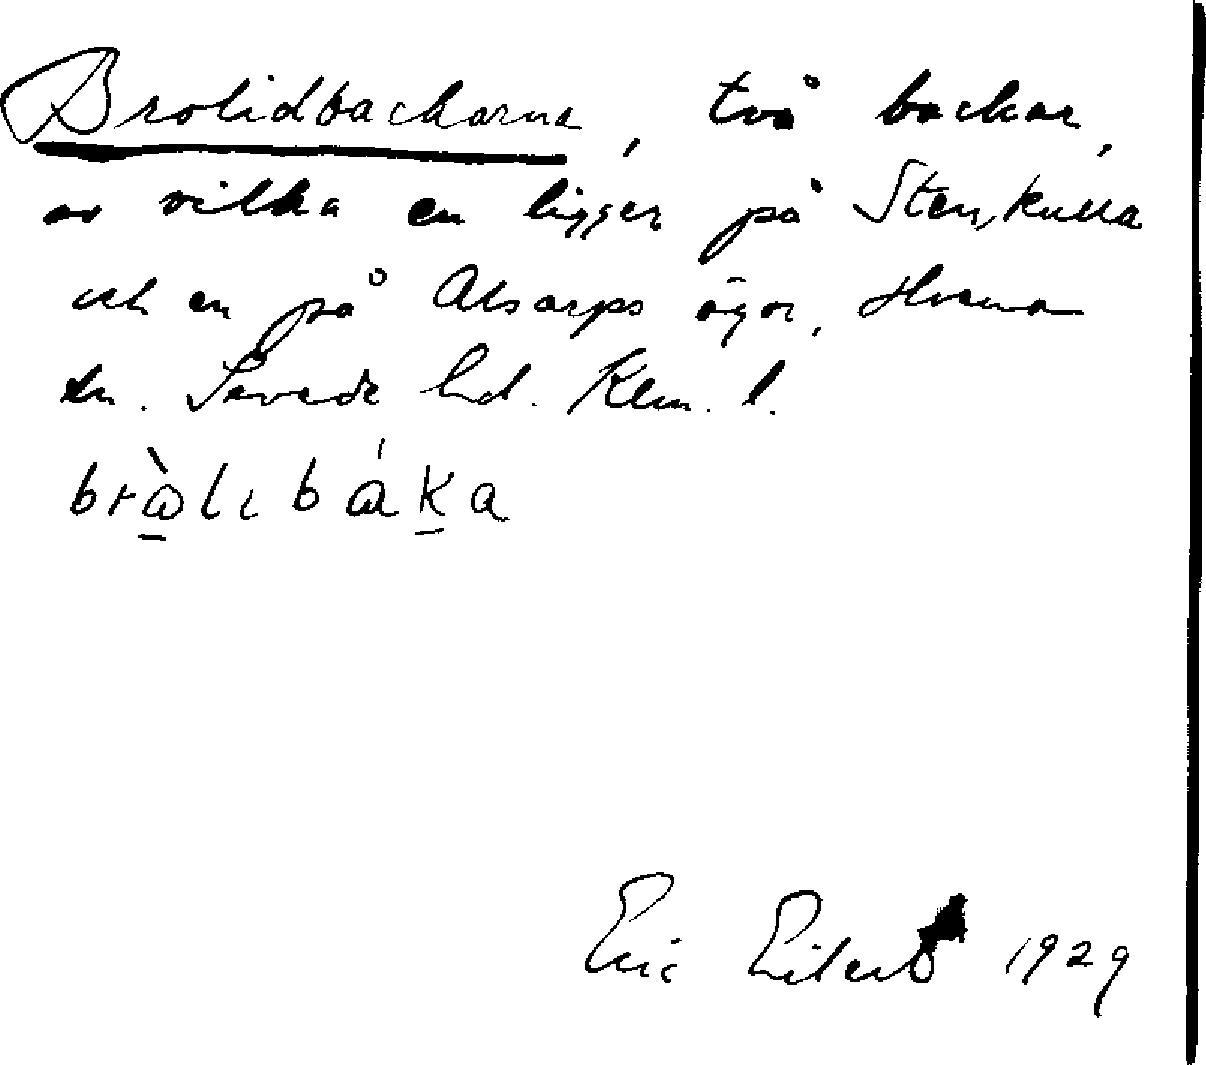 Brolidbackarna, två backar,
av vilka en ligger på Stenkulla
och en på Alsarps ägor,
sn. Sevede hd. Klm. l.
bràlıbáka
Eric 1929